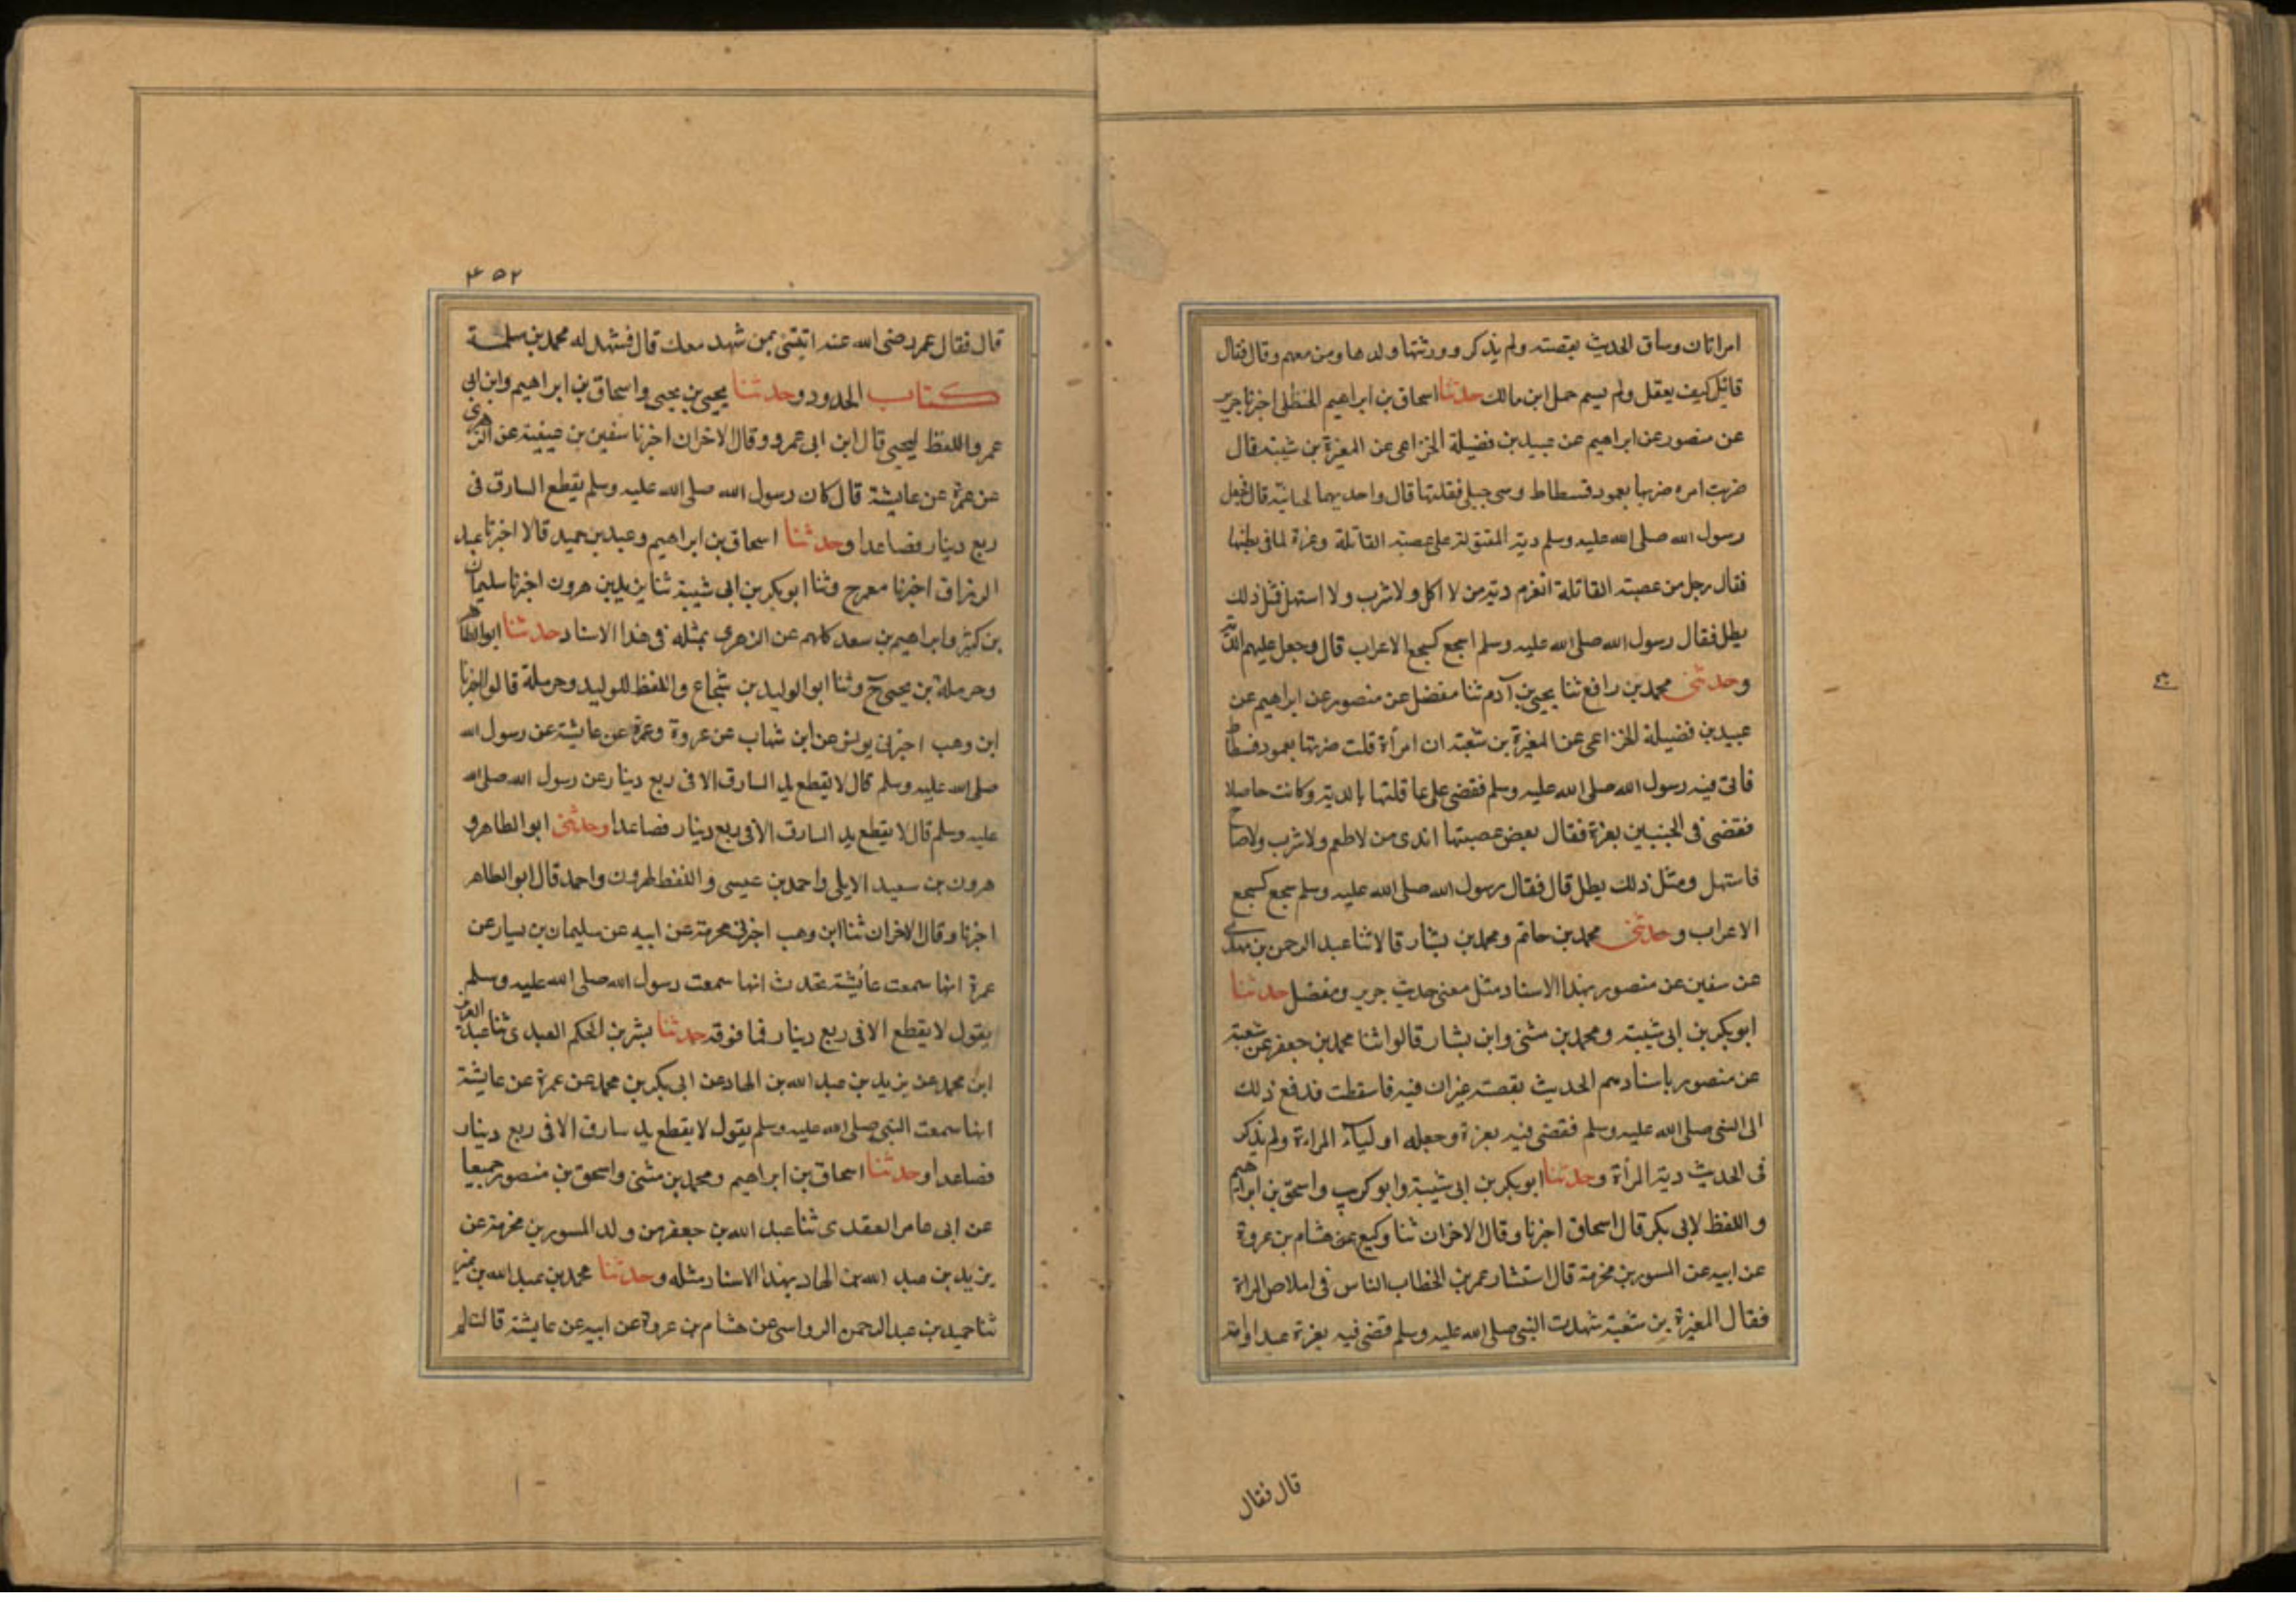 امراتان وساق الحديث بقصته ولم يذكر وورثتها ولدها ومن معهم وقال فقال
قائل كيف يعقل ولم يسم حمل ابن مالك حدثنا اسحاق بن ابراهيم الحنظلى اخبرنا جرير
عن منصور عن ابراهيم عن عبيد بن فضيلة الخزاعى عن المغيرة بن شيبة قال
ضربت امره ضربها بعمود فسطاط وسى حبلى فقلتها قال واحديهما لحيانية قال فجعل
رسول الله صلى الله عليه وسلم دية المقتولة على عصبة القاتلة وغرة لما فى بطنها
فقال رجل من عصبة القاتلة انغرم دية من لا اكل ولا شرب ولا استهل فمثل ذلك
يطل فقال رسول الله صلى الله عليه وسلم اسجع كسجع الاعراب قال وجعل عليهم الدية
وحدثنى محمد بن رافع ثنا يحيى بن آدم ثنا مفضل عن منصور عن ابراهيم عن
عبيد بن فضيلة الخزاعى عن المغيرة بن شعبة ان امرأة قلت ضرتها بعمود فسطاط
فاتى فيه رسول الله صلى الله عليه وسلم فقضى على عاقلتها بالدية وكانت حاملا
فقضى فى الجنين بغرة فقال بعض عصبتها اندى من لا طعم ولا شرب ولا صاح
فاستهل ومثل ذلك يطل قال فقال رسول الله صلى الله عليه وسلم سجع كسجع
الاعراب وحدثنى محمد بن حاتم ومحمد بن بشار قالا ثنا عبد الرحمن بن مهدى
عن سفين عن منصور بهذا الاسناد مثل معنى حديث جرير ومفضل حدثنا
ابو بكر بن ابى شيبة ومحمد بن مثنى وابن بشار قالوا ثنا محمد بن جعفر عن شعبة
عن منصور باسنادهم الحديث بقصته غيران فيه فاسقطت فدفع ذلك
الى النبى صلى الله عليه وسلم فقضى فيه بغرة وجعله اولياء المراءة ولم يذكر
فى الحديث دية المرأة وحدثنا ابو بكر بن ابى شيبة وابو كريب واسحق بن ابراهيم
واللفظ لابى بكر قال اسحاق اخبرنا وقال الاخران ثنا وكيع عن هشام بن عروة
عن ابيه عن المسور بن مخرمة قال استشار عمر بن الخطاب الناس فى املاص المراة
فقال المغيرة بن شعبة شهدت النبى صلى الله عليه وسلم قضى فيه بغرة عبد اوامة
قال فقال
۴۵۲
قال فقال عمر رضى الله عنه ايتنى بمن شهد معك قال فشهد له محمد بن سلمة
كتاب الحدود وحدثنا يحيى بن يحيى واسحاق بن ابراهيم وابن ابى
عمر واللفظ ليحيى قال ابن ابى عمرو وقال الاخران اخبرنا سفين بن عيينة عن الزهرى
عن عمرة عن عايشة قال كان رسول الله صلى الله عليه وسلم يقطع السارق فى
ربع دينار فصاعدا وحدثنا اسحاق بن ابراهيم وعبد بن حميد قالا اخبرنا عبد
الرزاق اخبرنا معمر ح وثنا ابو بكر بن ابى شيبة ثنا يزيد بن هرون اخبرنا سليمان
بن كثير وابراهيم بن سعد كلهم عن الزهرى بمثله فى هذا الاسناد حدثنا ابو الطاهر
وحرملة بن يحيى ح وثنا ابو الوليد بن شجاع واللفظ للوليد وحرملة قالوا اخبرنا
ابن وهب اخبرنى يونس عن ابن شهاب عن عروة وعمرة عن عايشة عن رسول الله
صلى الله عليه وسلم قال لا يقطع يد السارق الا فى ربع دينار عن رسول الله صلى الله
عليه وسلم قال لا يقطع يد السارق الا فى ربع دينار فصاعدا وحدثنى ابو الطاهر و
هرون بن سعيد الايلى واحمد بن عيسى واللفظ لهرون واحمد قال ابو الطاهر
اخبرنا وقال الاخران ثنا ابن وهب اخبرنى مخرمة عن ابيه عن سليمان بن يسار عن
عمرة انها سمعت عائشة تحدث انها سمعت رسول الله صلى الله عليه وسلم
يقول لا يقطع الا فى ربع دينار فما فوقه حدثنا بشر بن الحكم العبدى ثنا عبد العزيز
ابن محمد عن يزيد بن عبد الله بن الهاد عن ابى بكر بن محمد عن عمرة عن عايشة
انها سمعت النبى صلى الله عليه وسلم يقول لا يقطع يد سارق الا فى ربع دينار
فصاعدا وحدثنا اسحاق بن ابراهيم ومحمد بن مثنى واسحق بن منصور جميعا
عن ابى عامر العقدى ثنا عبد الله بن جعفر من ولد المسور بن مخرمة عن
يزيد بن عبد الله بن الهاد بهذا الاسناد مثله وحدثنا محمد بن عبد الله بن نمير
ثنا حميد بن عبد الرحمن الرواسى عن هشام بن عروة عن ابيه عن عايشة قالت لم